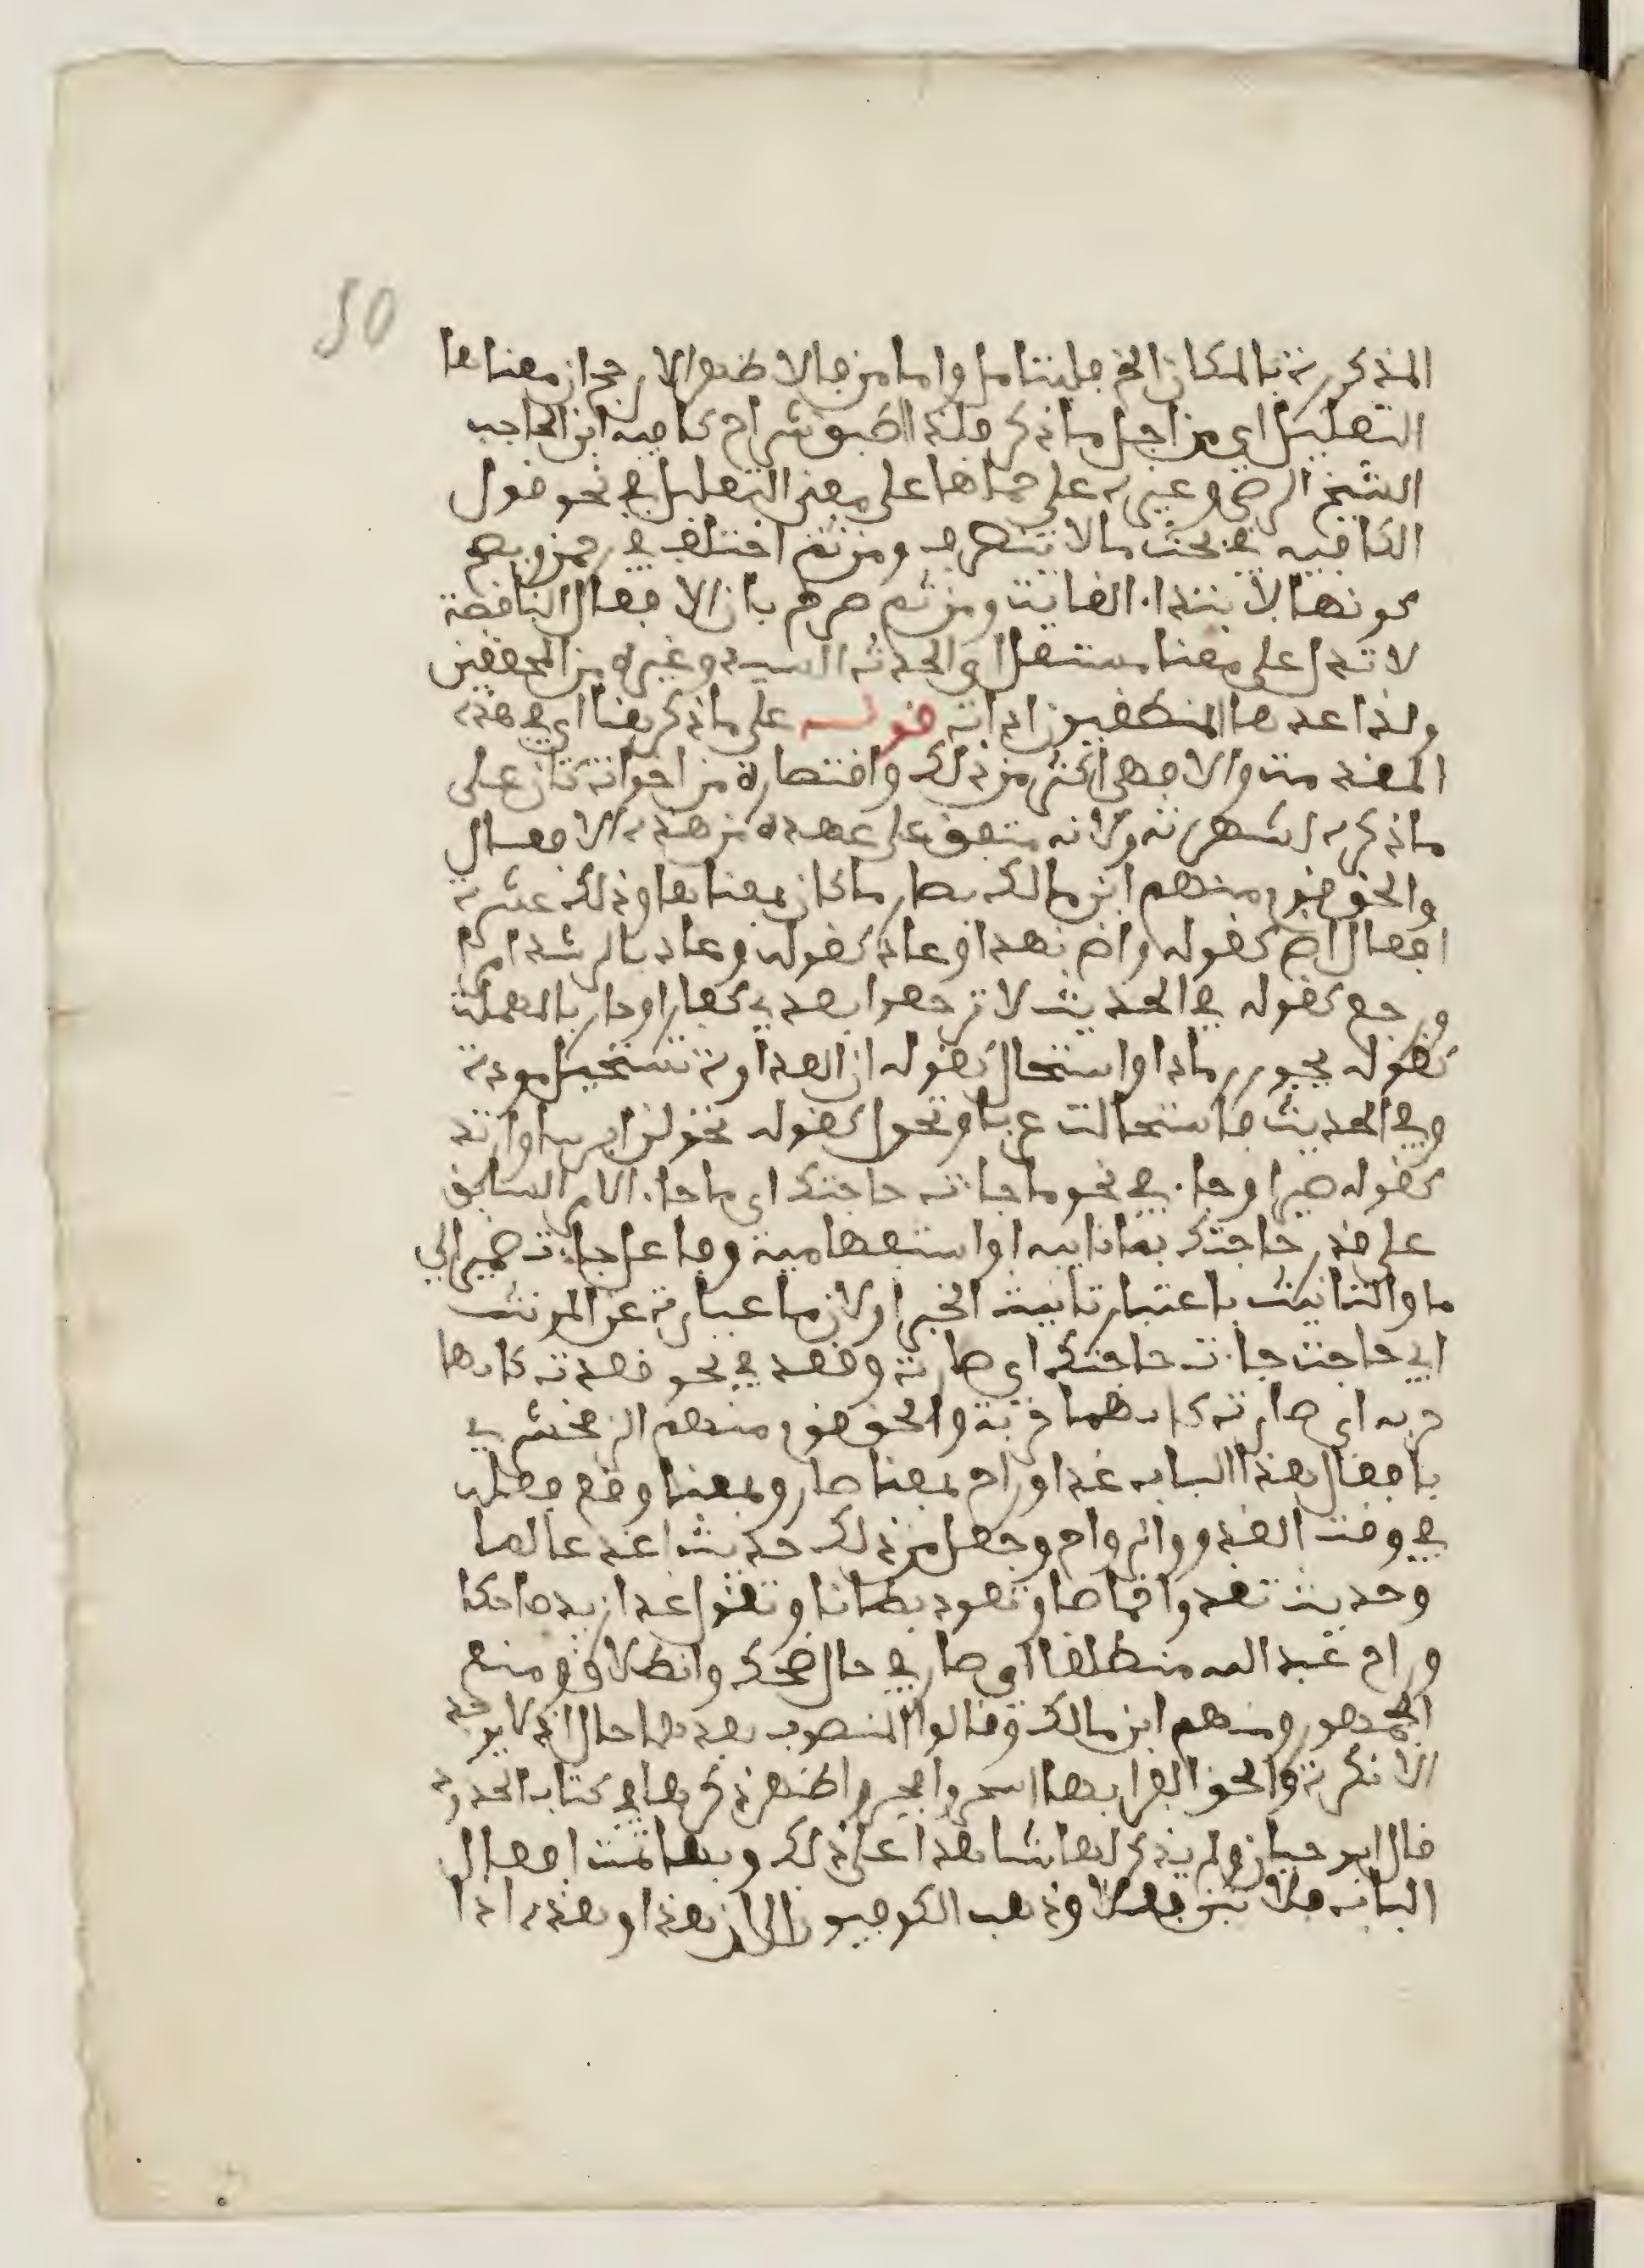 50
المذكورة بالمكان الخ فليتامل واما من فالاظهر الارجح ان معناها
التعليل اي من اجل ما ذكر فلذا اطبق شراح كافيه ابن الحاجب
الشيخ الرضى وغيره على حملها على معنى التعليل في نحو قول
الكافيه في بحث ما لا ينصرف ومن ثم اختلف في رحمن وبعضهم
كونها لابتداء الغايت ومن ثم صرحم بان الافعال الناقصة
لا تدل على معنا مستقل اي الحدث السيد وغيره من المحققين
ولذا عدها المنطقيون اداة قوله على ما ذكر هنا اي في هذه
المقدمت والا فهي اكثر من ذلك واقتصاره من اخواتـ كان على
ما ذكره لشهرته ولانه متفق على عده من هذه الافعال
والحق قوم منهم ابن مالك بصار ما كان بمعناها وذلك عشرة
افعال اض كقوله واض نهدا وعاد كقوله وعاد بالرشد امرا
ورجع كقوله في الحديث لا ترجعوا بعدي كفارا وحار بالمهملت
كقوله يحور رمادا واستحال كقوله ان العداوة تستحيل مودة
وفي الحديث فاستحالت غربا وتحول كقوله تحولن ابوسا وارتد
كقوله بصيرا وجاء في نحو ما جاءت حاجتك اي ما جاء الامر السابق
على قدر حاجتك بما نافيه او استفهامية وفاعل جاءت ضمير الي
ما والتانيث باعتبار تانيث الخبر او لان ما عبارة عن المونث
اي حاجت جاءت حاجتك اي صارت وقعد في نحو قعدت كانها
حربه اي صارت كانها حربة والحق قوم منهم الزمخشري
بافعال هذا الباب غدا وراح بمعنا صار وبمعنا وقع فعله
في وقت الغدو والرواح وجعل من ذلك حديث اغد عالما
وحديث تغدوا خماصا وتعود بطانا وتقول غدا زيد ضاحكا
وراح عبد الله منطلقا اي صار في حال ضحك وانطلاق ومنع
الجمهور ومنهم ابن مالك وقالوا المنصوب بعدهما حال اذ لا يوجد
الا نكرة والحق الفرا بها اسحر وافجر واظهر ذكرها في كتاب الحدود
قال ابو حيان ولم يذكر لها شاهدا على ذلك وبها تمت افعال
الباب ثلاثين فعلا وذهب الكوفيون الى ان هذا وهذه اذا